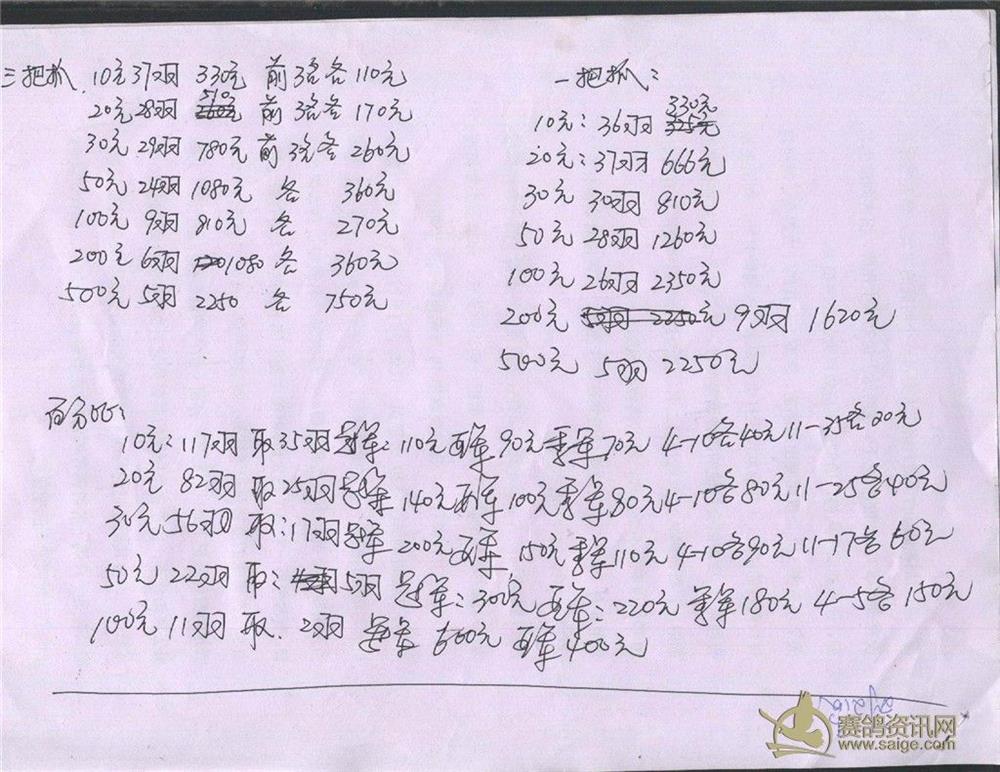 三把抓 10元 37羽 330元 前3名各 110元
20元 28羽 510元 前3名各 170元
30元 29羽 780元 前3名各 260元
50元 24羽 1080元 各 360元
100元 9羽 810元 各 270元
200元 6羽 1080 各 360元
500元 5羽 2250 各 750元
一把抓:
10元: 36羽 330元 325元
20元: 37羽 666元
30元 30羽 810元
50元 28羽 1260元
100元 26羽 2350元
200元 5羽 2250元 9羽 1620元
500元 5羽 2250元
百分比:
10元: 117羽 取35羽 冠军: 110元 亚军 90元 季军 70元 4-10各40元 11-35各20元
20元 82羽 取25羽 冠军 140元 亚军 100元 季军 80元 4-10各80元 11-25各40元
30元 56羽 取:17羽 冠军 200元 亚军 150元 季军 110元 4-10各90元 11-17各60元
50元 22羽 取: 5羽 冠军: 300元 亚军: 220元 季军 180元 4-5各 150元
100元 11羽 取. 2羽 冠军 600元 亚军 400元
赛鸽资讯网
www.saige.com